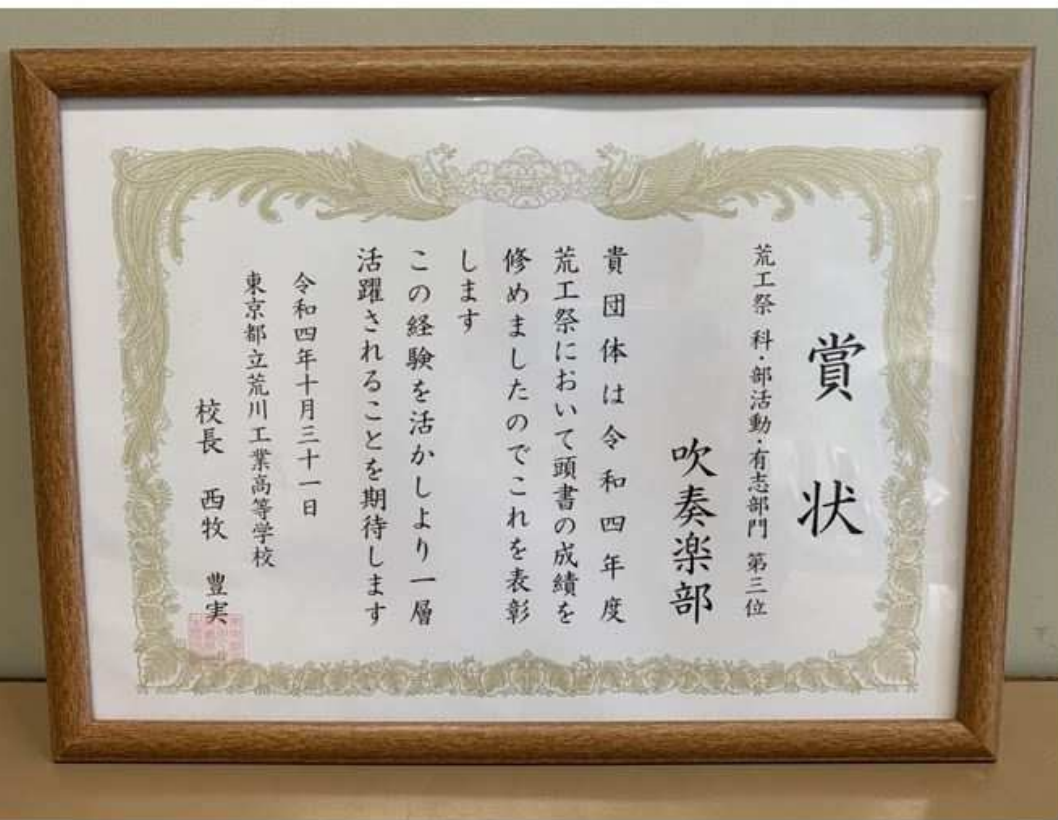 賞状
荒工祭 科・部活動・有志部門 第三位
吹奏楽部
貴団体は令和四年度
荒工祭において頭書の成績を
修めましたのでこれを表彰
します
この経験を活かしより一層
活躍されることを期待します
令和四年十月三十一日
東京都立荒川工業高等学校
校長 西牧 豊実